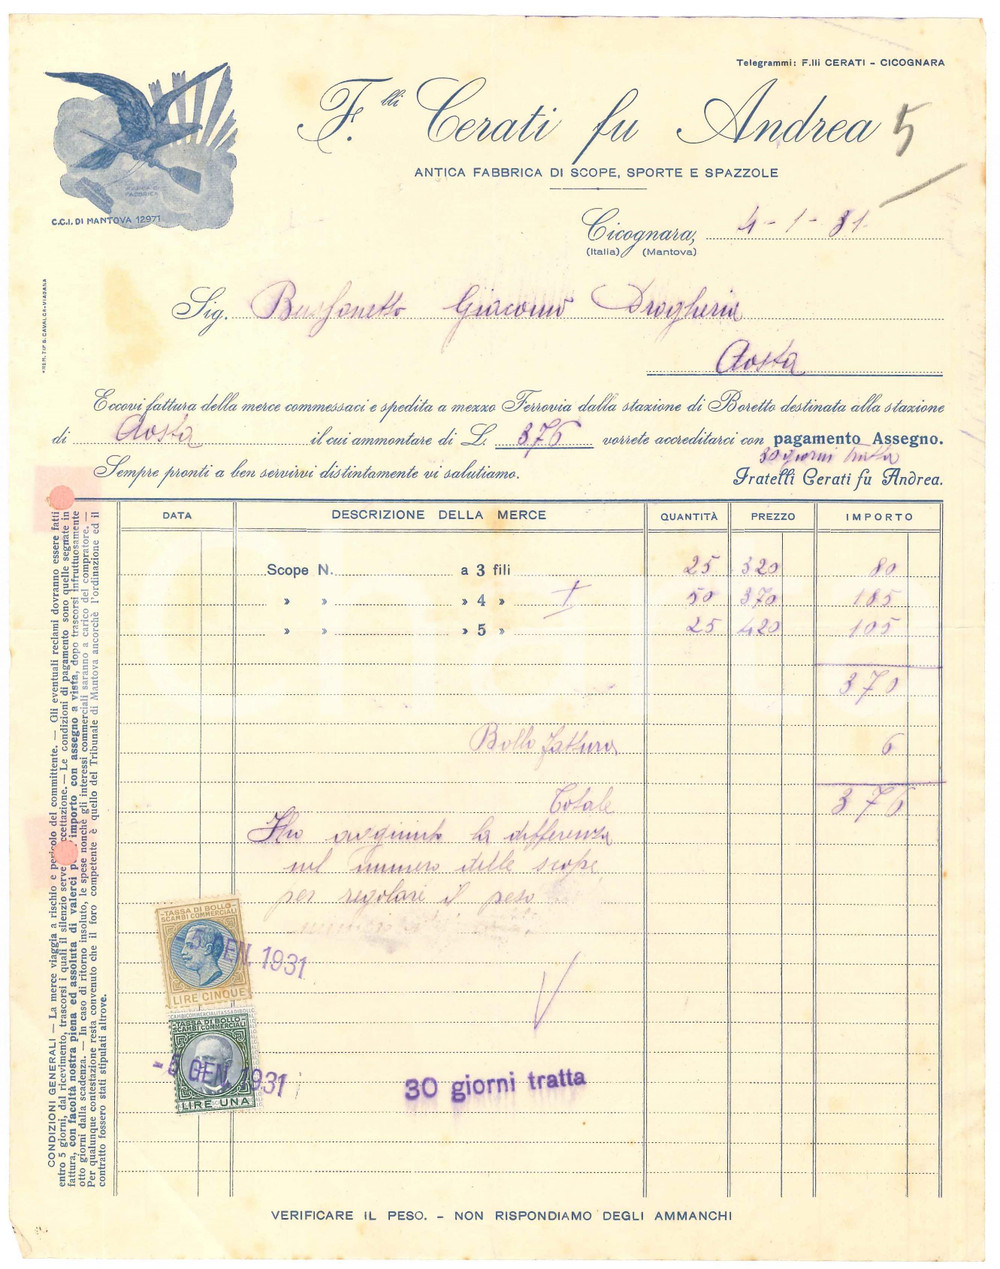 Telegrammi: F.lli CERATI - CICOGNARA
F.lli Cerati fu Andrea
5
ANTICA FABBRICA DI SCOPE, SPORTE E SPAZZOLE
C.C.I. DI MANTOVA 12971
Cicognara, 4-1-31
(Italia) (Mantova)
Sig. Giacomo Drogheria
Aosta
Eccovi fattura della merce commessaci e spedita a mezzo Ferrovia dalla stazione di Boretto destinata alla stazione
di Aosta il cui ammontare di L. 376 vorrete accreditarci con pagamento Assegno.
30 giorni tratta
Sempre pronti a ben servirvi distintamente vi salutiamo.
Fratelli Cerati fu Andrea.
DATA DESCRIZIONE DELLA MERCE QUANTITÀ PREZZO IMPORTO
Scope N. a 3 fili 25 320 80
» » » 4 » 50 370 185
» » » 5 » 25 420 105
370
Bollo fattura 6
Totale 376
Ho aggiunto la differenza
nel numero delle scope
per regolare il peso
TASSA DI BOLLO
SCAMBI COMMERCIALI
LIRE CINQUE
-5 GEN. 1931
TASSA DI BOLLO
SCAMBI COMMERCIALI
LIRE UNA
-5 GEN. 1931
30 giorni tratta
CONDIZIONI GENERALI — La merce viaggia a rischio e pericolo del committente. — Gli eventuali reclami dovranno essere fatti
entro 5 giorni, dal ricevimento, trascorsi i quali il silenzio serve accettazione. — Le condizioni di pagamento sono quelle segnate in
fattura, con facoltà nostra piena ed assoluta di valerci importo con assegno a vista, dopo trascorsi infruttuosamente
otto giorni dalla scadenza. — In caso di ritorno insoluto, le spese nonchè gli interessi commerciali saranno a carico del compratore. —
Per qualunque contestazione resta convenuto che il foro competente è quello del Tribunale di Mantova ancorchè l'ordinazione ed il
contratto fossero stati stipulati altrove.
VERIFICARE IL PESO. - NON RISPONDIAMO DEGLI AMMANCHI